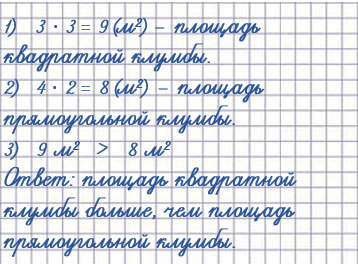 1) 3 · 3 = 9 (м²) – площадь
квадратной клумбы.
2) 4 · 2 = 8 (м²) – площадь
прямоугольной клумбы.
3) 9 м² > 8 м²
Ответ: площадь квадратной
клумбы больше, чем площадь
прямоугольной клумбы.